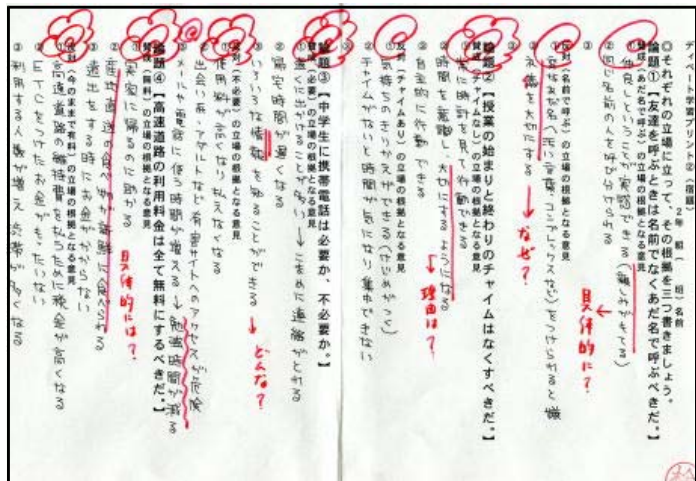 ディベート学習プリント②（宿題）
２年 組（ ）名前
◎それぞれの立場に立って、その根拠を三つ書きましょう。
論題①【友達を呼ぶときは名前でなくあだ名で呼ぶべきだ。】
賛成（あだ名で呼ぶ）の立場の根拠となる意見
①仲良しということが実感できる（親しみがもてる）
②同じ名前の人を呼び分けられる
③
具体的に？
反対（名前で呼ぶ）の立場の根拠となる意見
①変なあだ名（悪い言葉、コンプレックスなど）をつけられると嫌
②礼儀を大切にする
なぜ？
③
論題②【授業の始まりと終わりのチャイムはなくすべきだ。】
賛成（チャイムなし）の立場の根拠となる意見
①常に時計を見て行動できる
②時間を意識し、大切にするようになる
理由は？
③自主的に行動できる
反対（チャイムあり）の立場の根拠となる意見
①気持ちのきりかえができる（けじめがつく）
②チャイムがないと時間が気になり集中できない
③
論題③【中学生に携帯電話は必要か、不必要か。】
賛成（必要）の立場の根拠となる意見
①遠くに出かけることが多い→こまめに連絡がとれる
②帰宅時間が遅くなる
③いろいろな情報を知ることができる
どんな？
反対（不必要）の立場の根拠となる意見
①使用料が高くなり払えなくなる
②出会い系・アダルトなど有害サイトへのアクセスが危険
③メールや電話に使う時間が増える→勉強時間が減る
論題④【高速道路の利用料金は全て無料にするべきだ。】
賛成（無料）の立場の根拠となる意見
①実家に帰るのに助かる
具体的には？
②産地直送の食べ物が新鮮に食べられる
③遠出をする時にお金がかからない
反対（今のままで有料）の立場の根拠となる意見
①高速道路の維持費を払うために税金が高くなる
②ETCをつけたお金がもったいない
③利用する人数が増え渋滞が多くなる